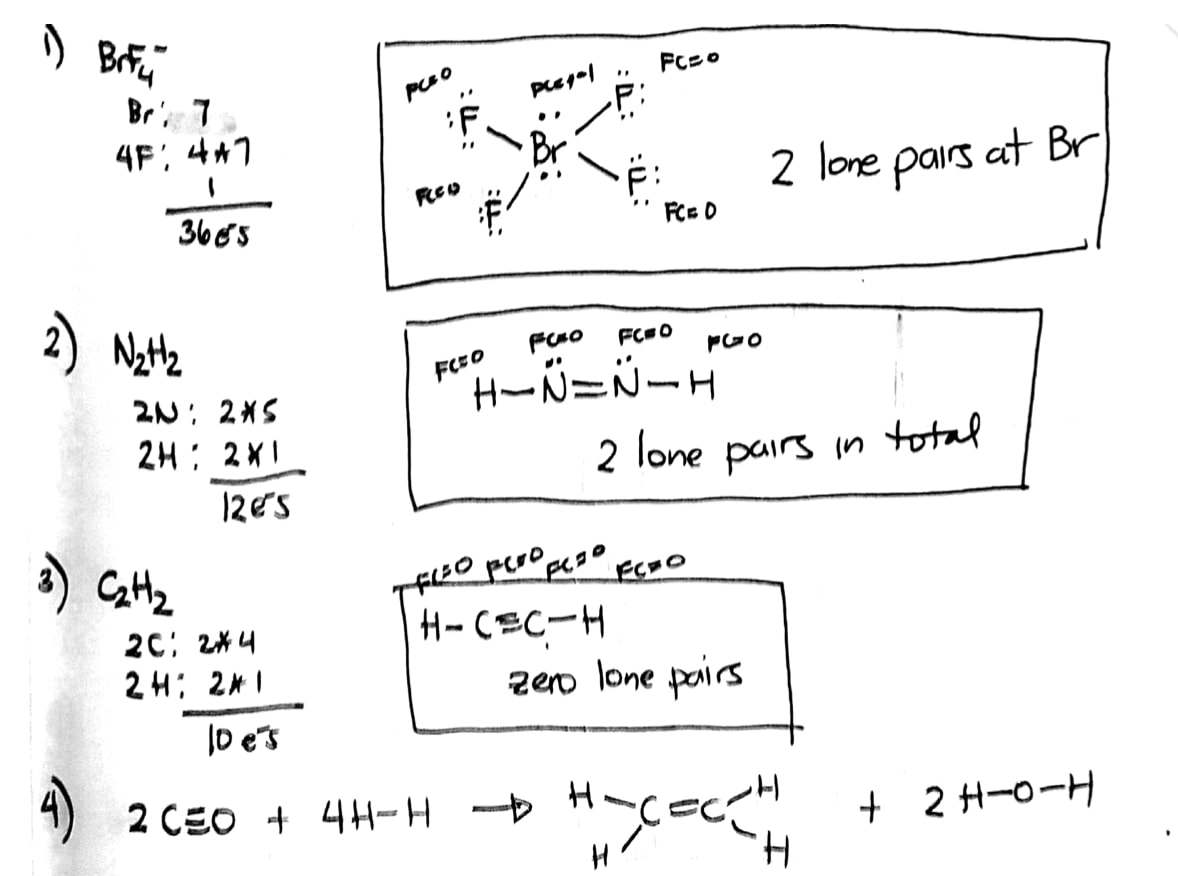 1) BrF₄⁻
Br: 7
4F: 4*7
1
36 e⁻s
FC=0 FC=-1 FC=0
:F: Br :F:
FC=0 :F: :F: FC=0
2 lone pairs at Br
2) N₂H₂
2N: 2*5
2H: 2*1
12 e⁻s
FC=0 FC=0 FC=0 FC=0
H-N̈=N̈-H
2 lone pairs in total
3) C₂H₂
2C: 2*4
2H: 2*1
10 e⁻s
FC=0 FC=0 FC=0 FC=0
H-C≡C-H
zero lone pairs
4) 2 C≡O + 4 H-H → H H C=C H H + 2 H-O-H